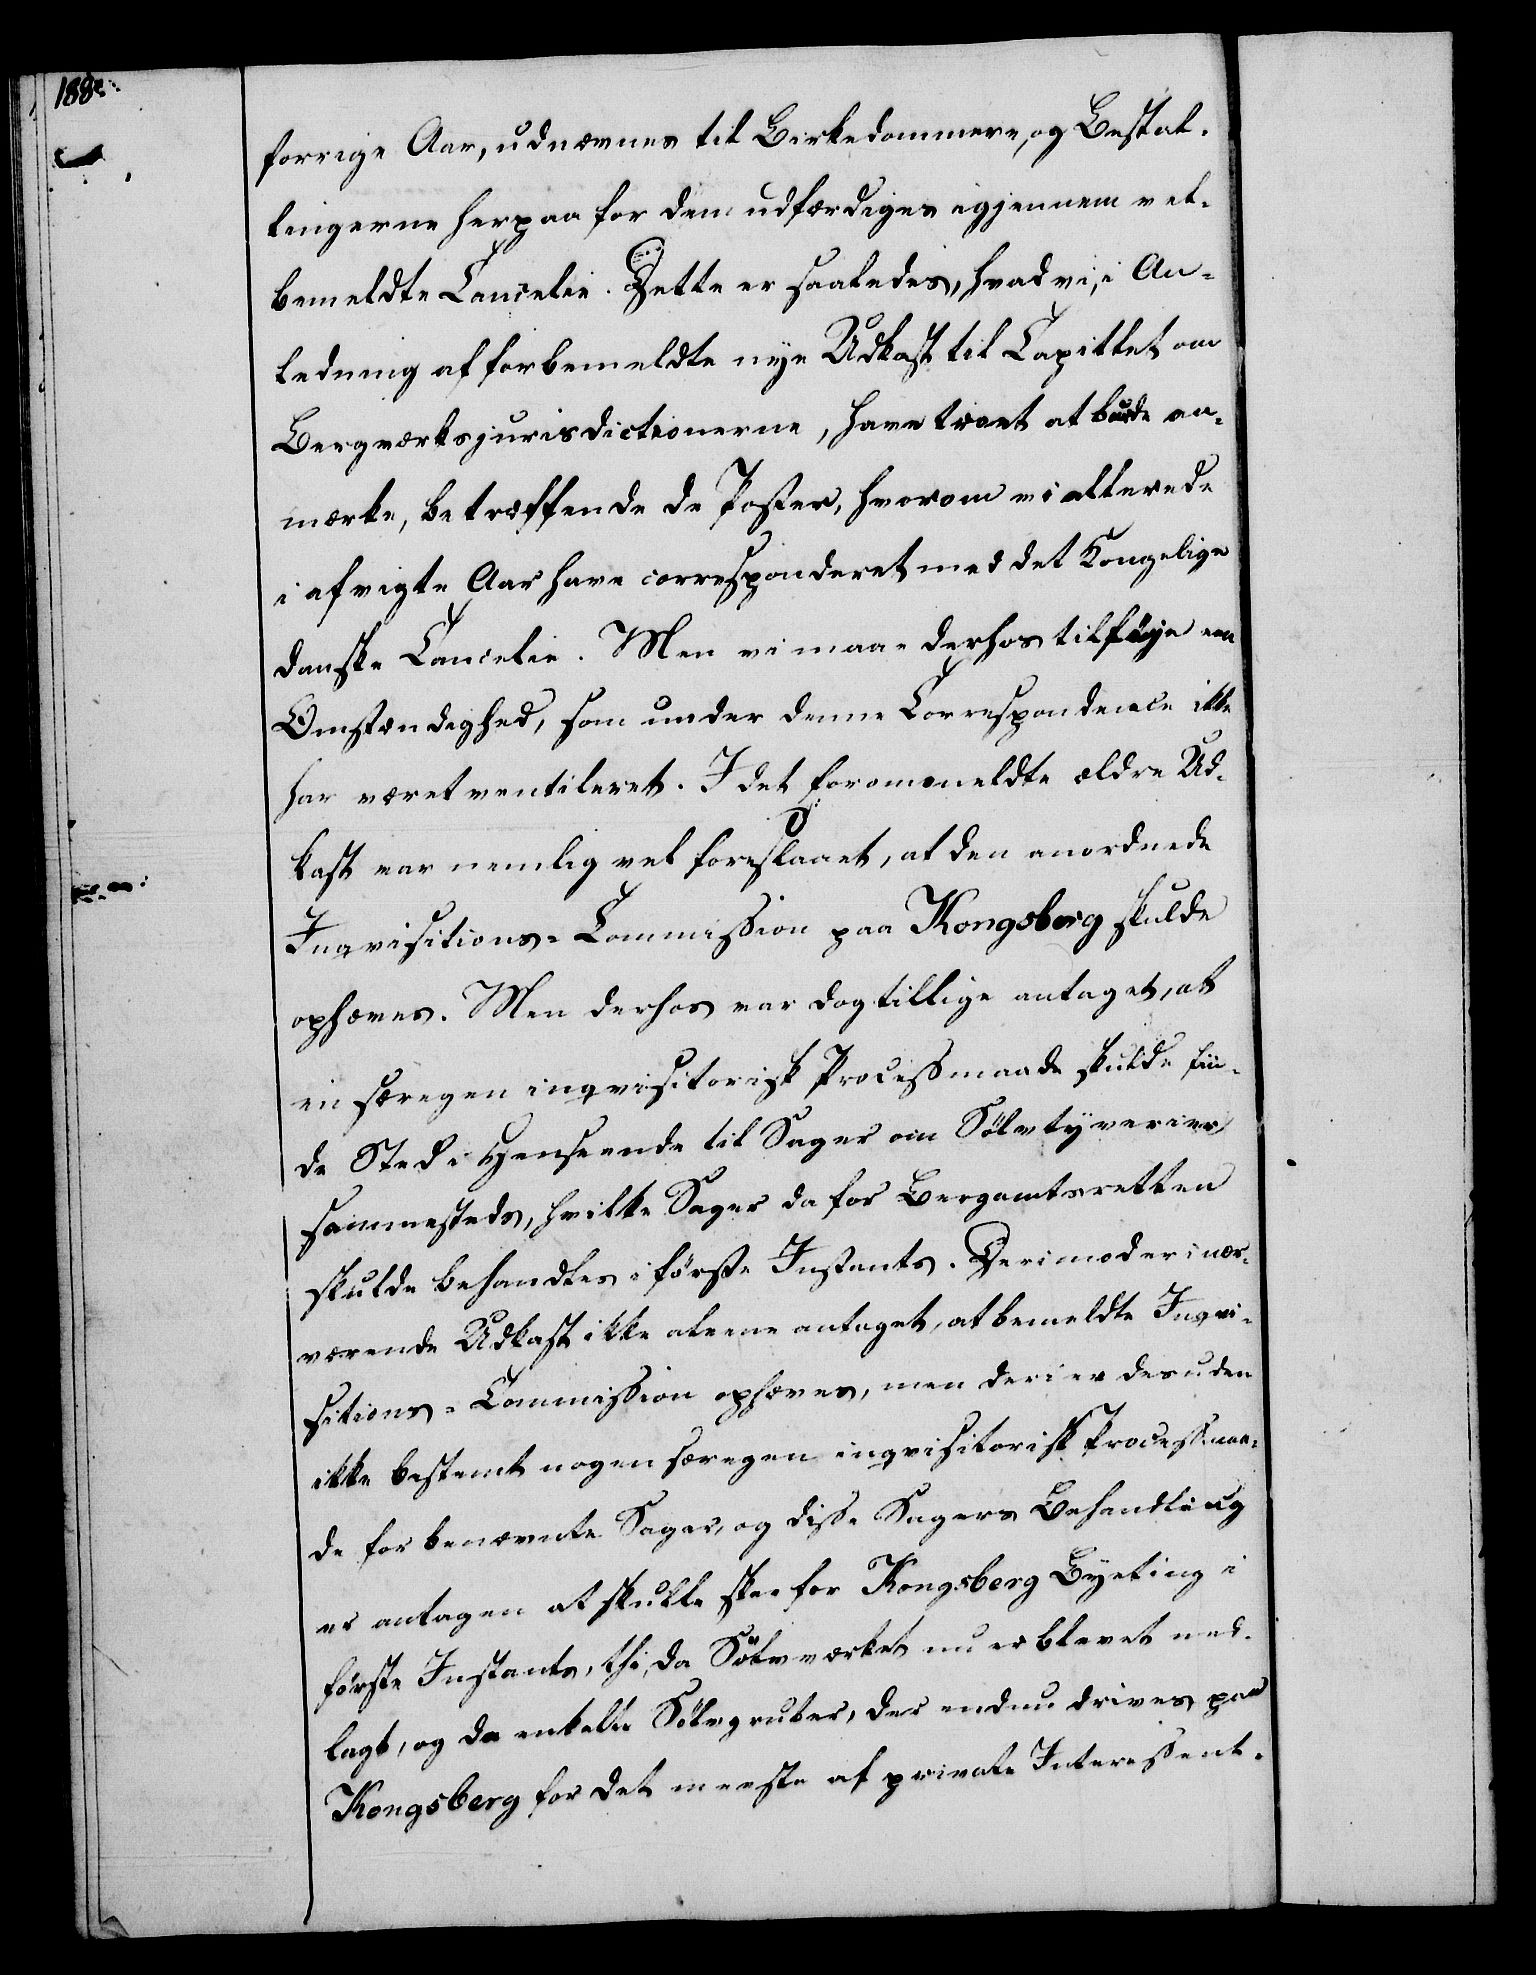 forrige Aar, udnævnes til Birkedommere, og Bestal-
lingerne herpaa for dem udfærdiges igjennem vel-
bemeldte Cancelie. Dette er saaledes, hvad vi, i An-
ledning af forbemeldte nye Udkast til Capitlet om
Bergværksjurisdictionerne, have troet at burde an-
mærke, betræffende de Poster, hvorom vi allerede
i afvigte Aar have corresponderet med det Kongelige
danske Cancelie. Men vi maae derhos tilføye een
Omstændighed, som under denne Correspondence ikke
har været ventileret. I det forommeldte ældre Ud-
kast var nemlig vel foreslaaet, at den anordnede
Inqvisitions-Commission paa Kongsberg skulde
ophæves. Men derhos var dog tillige antaget, at
en særegen inqvisitorisk Processmaade skulde fin-
de Sted i Henseende til Sager om Sölvtyverier
sammesteds, hvilke Sager da for Bergamtsretten
skulde behandles i förste Instants. Derimod er i nær-
værende Udkast ikke aleene antaget, at bemeldte Inqvi-
sitions-Commission ophæves, men deri er desuden
ikke bestemt nogen særegen inqvisitorisk Processmaa-
de for benævnte Sager, og disse Sagers Behandling
er antagen at skulle skee for Kongsberg Byeting i
förste Instants, thi, da Sölvværket nu er blevet ned-
lagt, og de enkelte Sölvgruber, der endnu drives paa
Kongsberg for det meeste af private Interessent-